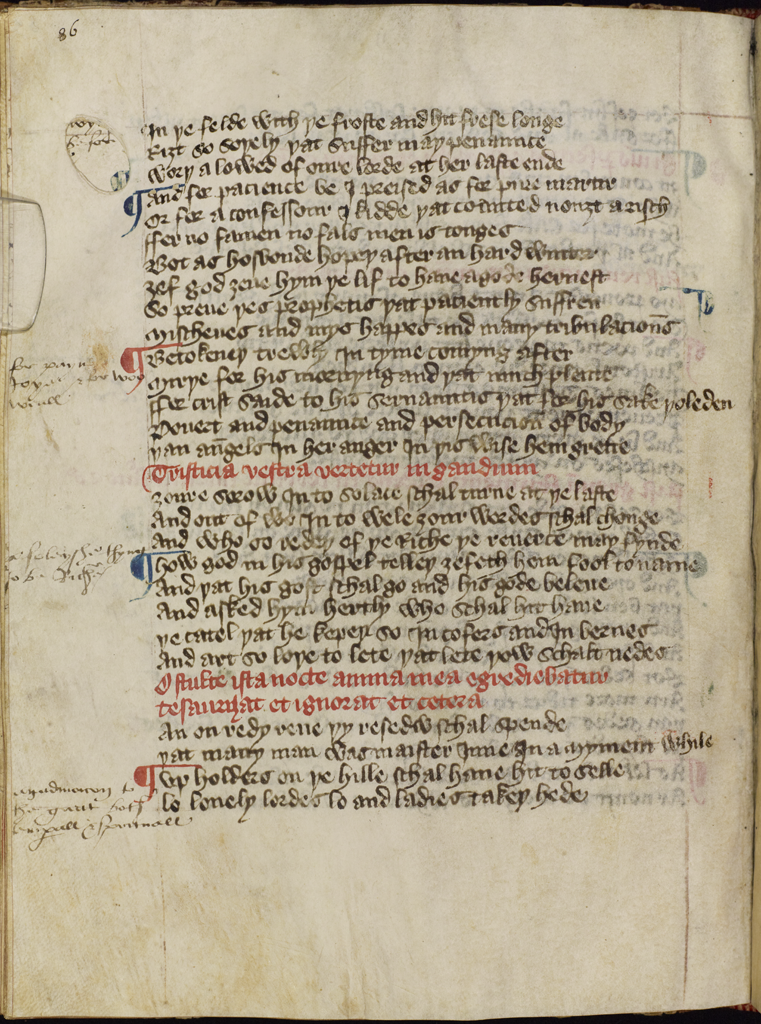 86
In ye felde with ye froste and hit frese longe
Rizt so soyely yat suffer may penaunce
Wory alowed of oure lorde at her laste ende
And for pacience be I preised as for pure martir
Or for a confessour I kidde yat counted nouzt a risch
ffer no famen no fals men is tonges
Bot as hosbonde hopey after an hard winter
zef god zeue hym ye lif to haue a gode heruest
So preue yes prophetis yat paciently suffren
Mischeues and mys happes and many tribulacions
Betokeney trewly In tyme comyng after
Myrye for his mornyng and yat mich plente
ffer crist saide to his seruauntis yat for his sake yoleden
Pouert and penaunce and persecucion of body
yan angels In her anger In yis wise hem grette
Tristicia vestra vertetur in gaudium
zoure sorow In to solace schal turne at ye laste
And out of wo In to wele zour werdes schal chonge
And who so redey of ye Riche ye reuerce may fynde
How god in his gospel telley zefeth hem fool to name
And yat his gost schal go and his gode beleue
And asked hym herthy who schal hit haue
ye catel yat he kepey so In cofers and In bernes
And art so loye to lete yat lete yow schalt nedes
O stulte ista nocte anima mea egrediebatur
tesaurizat et ignorat et cetera
An on redy reue yy resedw schal spende
yat many man was maister Inne In a myment while
Vp holders on ye hille schal haue hit to selle
lo louely lordes lo and ladies takey hede